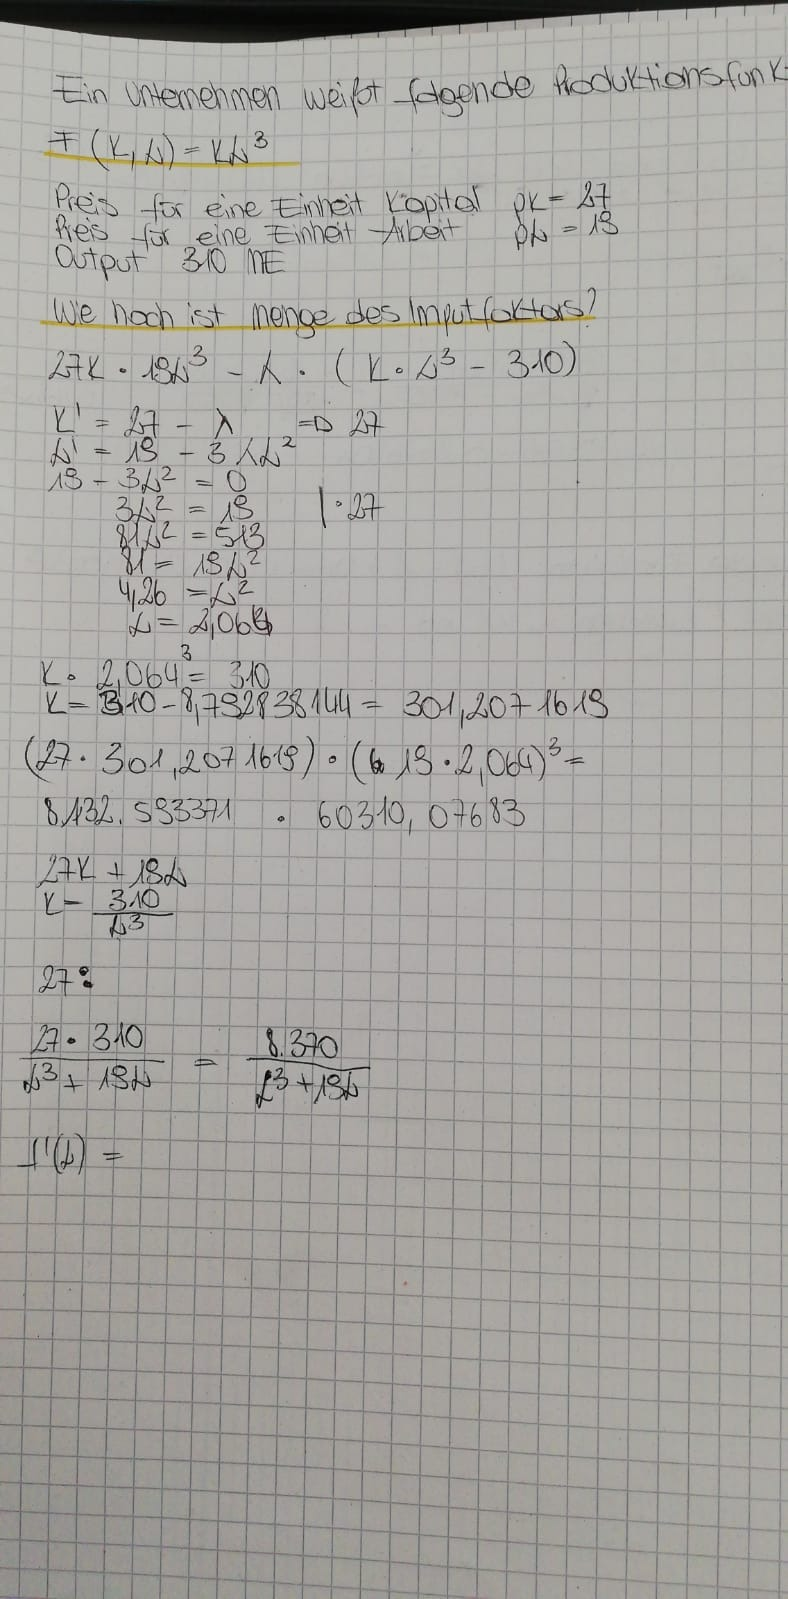 Ein Unternehmen weißt folgende Produktionsfunk
F (K, L) = KL³
Preis für eine Einheit Kapital pK = 27
Preis für eine Einheit Arbeit pL = 19
Output 310 ME
Wie hoch ist menge des Imputfaktors?
27K · 19L³ - λ · (K · L³ - 310)
K' = 27 - λ => 27
L' = 19 - 3λL²
19 - 3L² = 0
3L² = 19 | · 27
81L² = 513
81 = 19L²
4,26 = L²
L = 2,064
K · 2,064³ = 310
K = 310 - 8,792838144 = 301,2071619
(27 · 301,2071619) · (19 · 2,064)³ =
8.132.593371 · 60310,07683
27K + 19L
K = 310/L³
27:
27 · 310/L³ + 19L = 8.370/L³ + 19L
f'(L) =